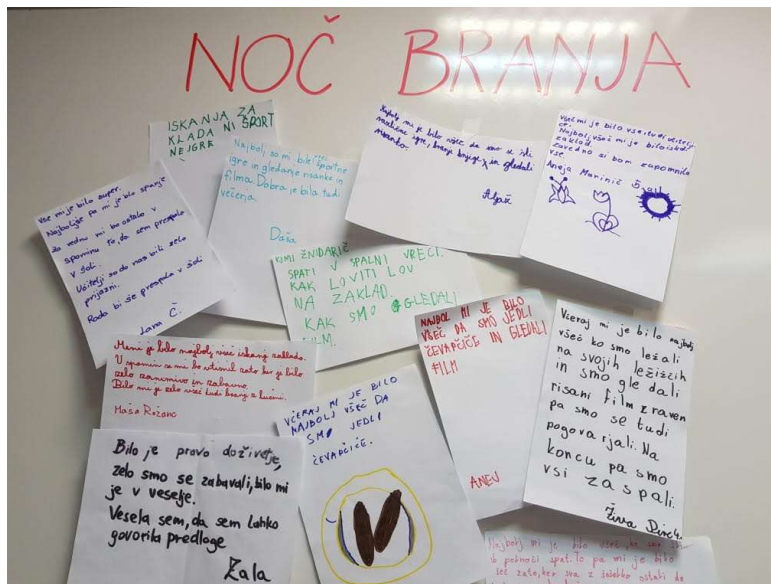 NOČ BRANJA
ISKANJA ZA
KLADA NI ŠPORT
NE IGRE
Najbolj so mi bile všeč športne
igre in gledanje risanke in
filma. Dobra je bila tudi
večerja.
Daša
Najbolj mi je bilo všeč da smo se šli
različne igre, brali knjige, in gledali
risanko.
Aljaž
Všeč mi je bilo vse, tudi učitelji
ce.
Najbolj všeč mi je bilo iskat
zaklad.
Zavedno si bom zapomnila
vse.
Aneja Marinič 5.
Vse mi je bilo super.
Najboljše pa mi je bilo spanje
za vedno mi bo ostalo v
spominu to, da sem prespala
v šoli.
Učitelji so do nas bili zelo
prijazni.
Rada bi še prespala v šoli
Lana Č.
KIMI ŽNIDARIČ
SPATI V SPALNI VREČI.
KAK LOVITI LOV
NA ZAKLAD.
KAK SMO GLEDALI
FILM.
NAJBOL MI JE BILO
VŠEČ DA SMO JEDLI
ČEVAPČIČE IN GLEDALI
FILM
ANEJ
Včeraj mi je bilo najbolj
všeč ko smo ležali
na svojih ležiščih
in smo gledali
risani film zraven
pa smo se tudi
pogovarjali. Na
koncu pa smo
vsi zaspali.
Živa
Meni je bilo najbolj všeč iskanje zaklada.
V spomin se mi bo vtisnil zato ker je bilo
zelo zanimivo in zabavno.
Bilo mi je zelo všeč tudi branje z lučmi.
Maša Rožanc
VČERAJ MI JE BILO
NAJBOLJ VŠEČ DA
SMO JEDLI
ČEVAPČIČE.
Bilo je pravo doživetje,
zelo smo se zabavali, bilo mi
je v veselje.
Vesela sem, da sem lahko
govorila predloge
Zala
Najbolj mi je bilo všeč, ko smo šli
ob polnoči spat. To pa mi je bilo
šeč zato, ker sva z žebelko ostali do